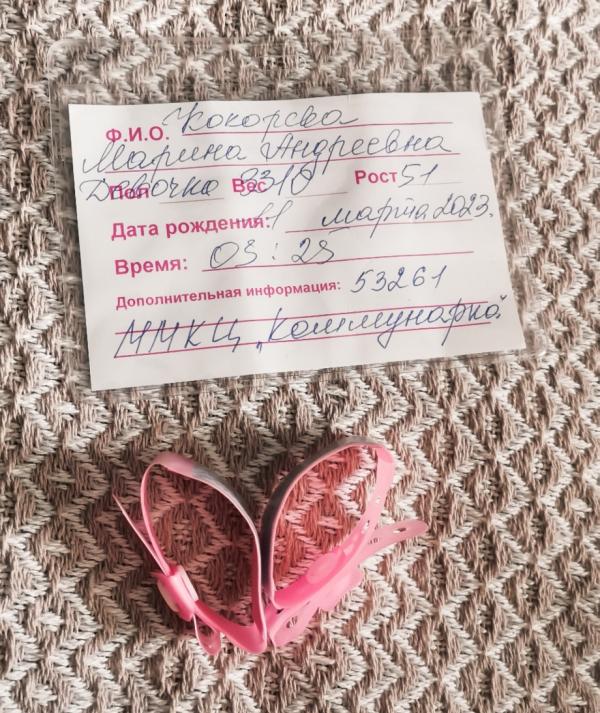 Ф.И.О. Кокорева
Марина Андреевна
Пол Девочка Вес 3310 Рост 51
Дата рождения: 11 марта 2023.
Время: 03:25
Дополнительная информация: 53261
ММКЦ "Коммунарка"